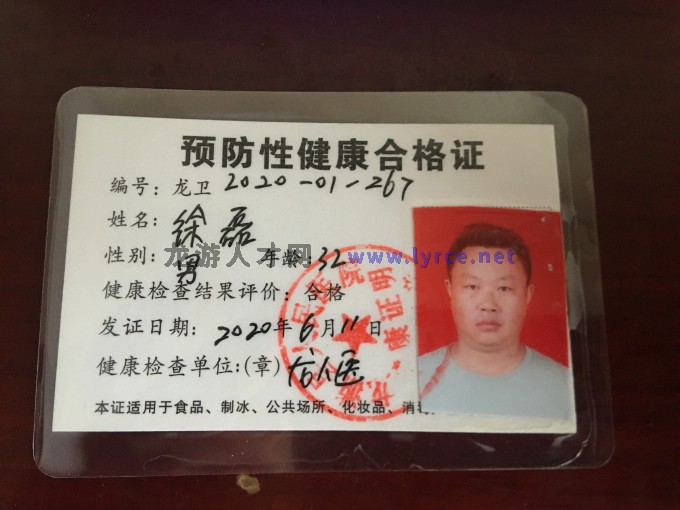 预防性健康合格证
编号：龙卫 2020-01-267
姓名：徐磊
性别：男 年龄：32
龙游人才网 www.lyrce.net
健康检查结果评价：合格
发证日期：2020年6月11日
健康检查单位:(章)
本证适用于食品、制冰、公共场所、化妆品、消
民医院
康证明